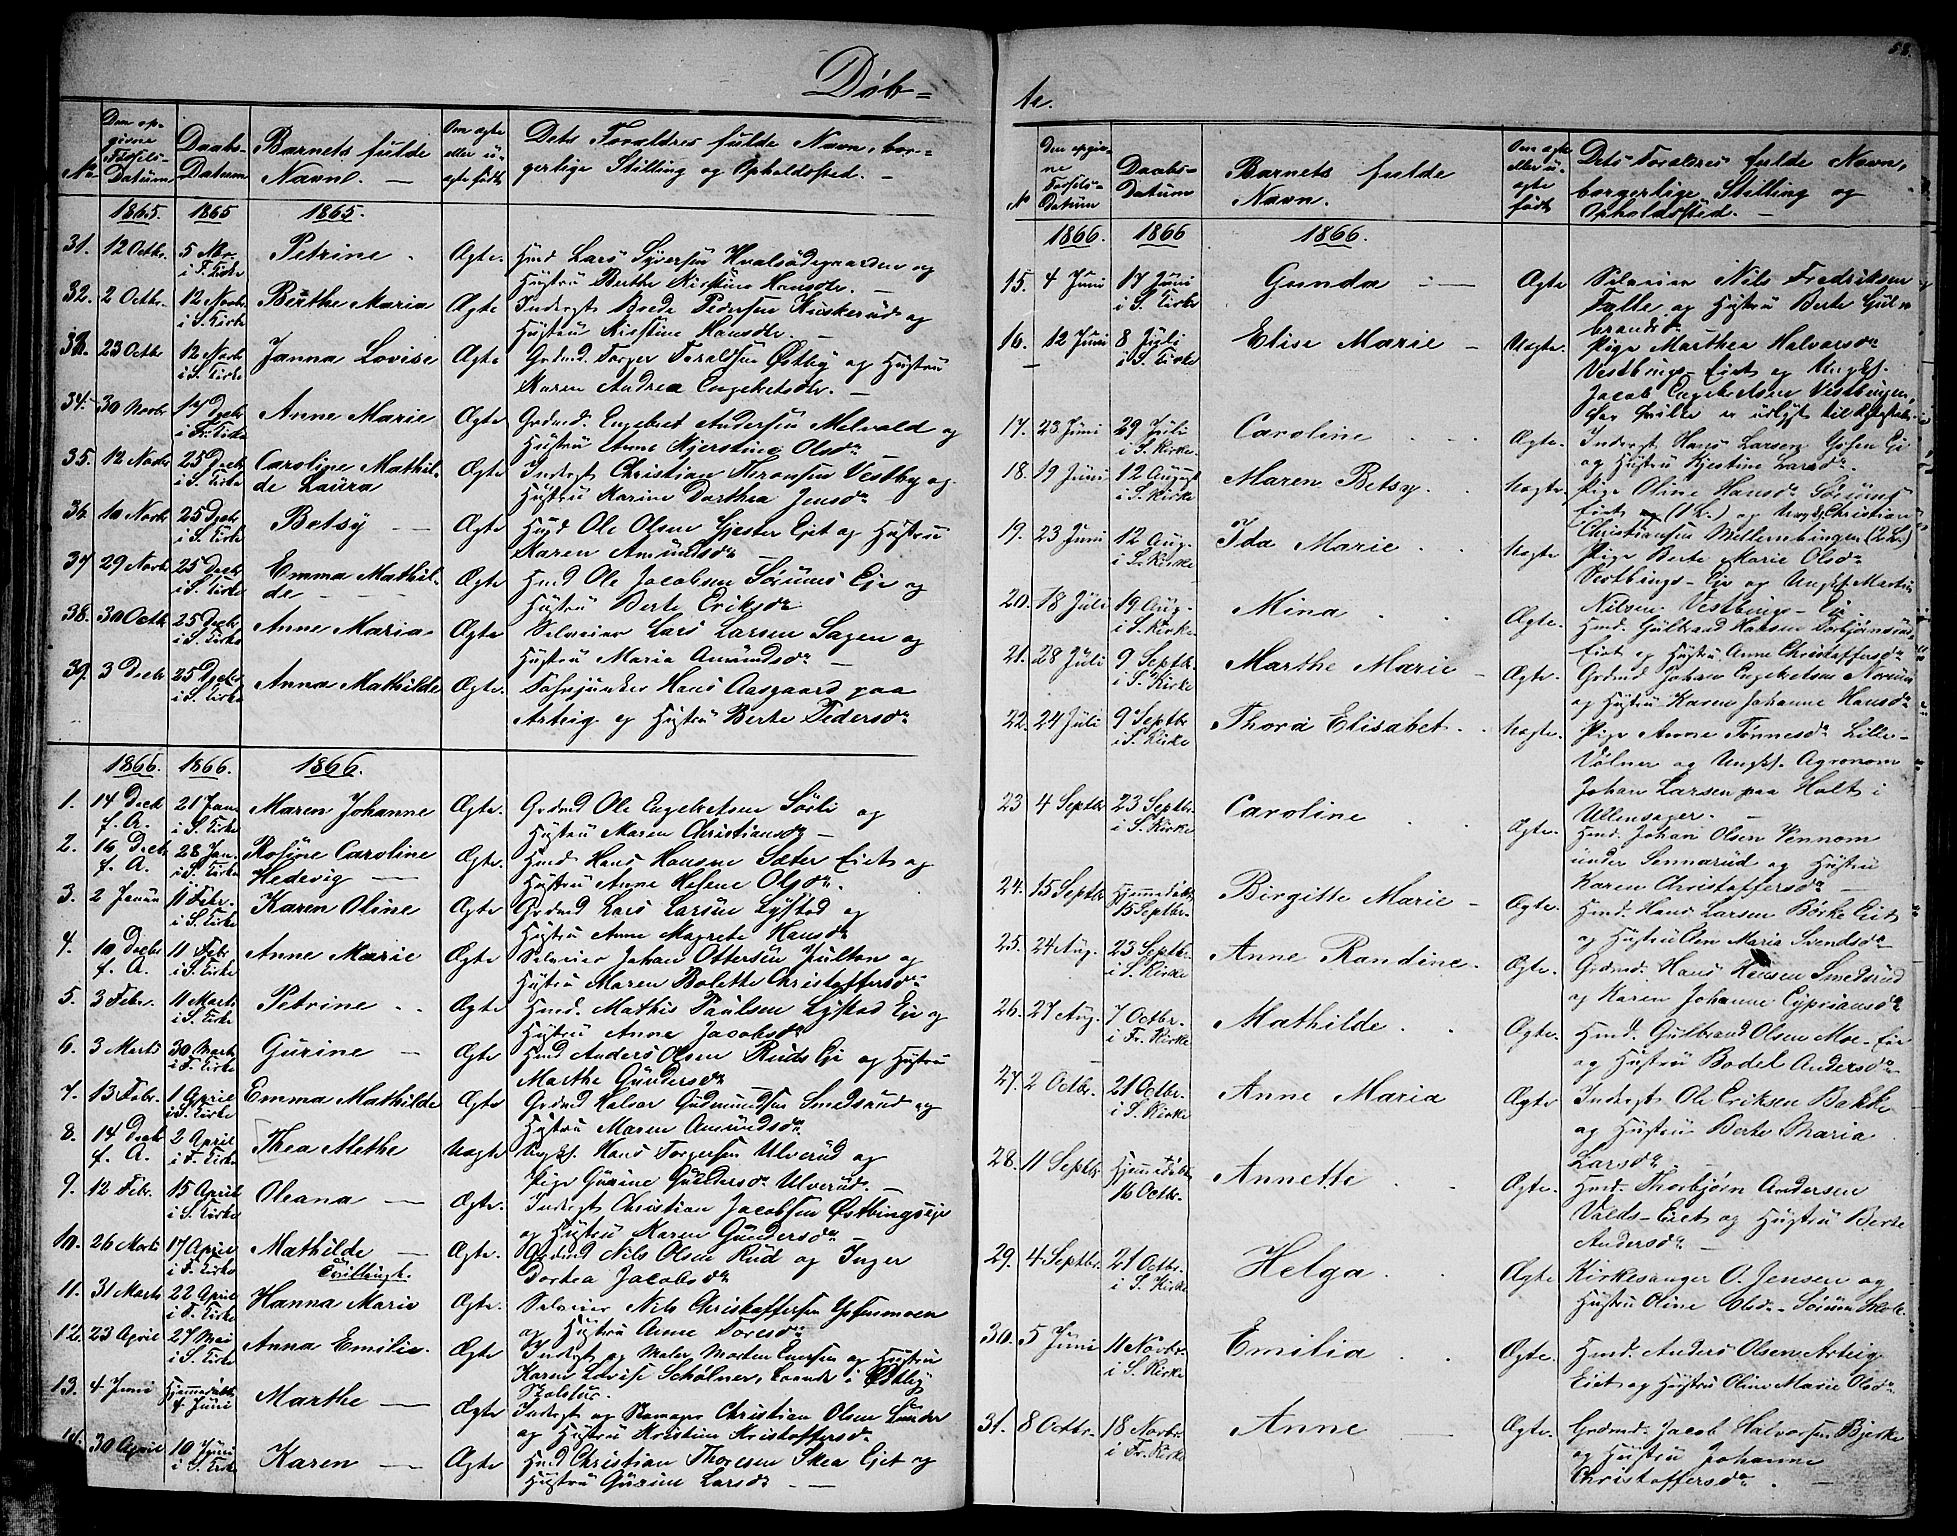 Døb=
No
Den op-
givne
Fødsels-
Datum
Daabs-
Datum
Barnets fulde
Navn. —
Om ægte
eller u-
ægte født
Dets Forældres fulde Navn, bor-
gerlige Stilling og Opholdssted. —
1865. 1865 1865.
31. 12 Octbr. 5 Nbr. i F. Kirke Petrine Ægte. Hmd Lars Syversen Hvalsødegaarden og
Hustru Berthe Kirstine Hansdtr. —
32. 2 Octbr. 12 Novbr i S. Kirke Berthe Maria Ægte Inderst Brede Pedersen Kuskerud og
Hustru Kirstine Hansdtr —
33. 23 Octbr 12 Novbr i S. Kirke Janna Lovise Ægte Grdmd. Torger Toraldsen Østby og Hustru
Karen Andrea Engebretsdtr. —
34. 30 Novbr 17 Decbr i Fr. Kirke Anne Marie Ægte Grdmd. Engebret Andersen Melvold og
Hustru Anne Kjerstine Olsdr
35. 12 Novbr 25 Decbr i S. Kirke Caroline Mathil-
de Laura Ægte Inderst Christian Iversen Vestby og
Hustru Karine Dorthea Jensdr
36. 10 Novbr 25 Decbr i S. Kirke Betsy — Ægte Husmd Ole Olsen Gjester Eiet og Hustru
Karen Amundsdr —
37 29 Novbr 25 Decbr i S. Kirke Emma Mathil-
de — Ægte Hmd Ole Jacobsen Sørums Eje og
Hustru Berte Eriksdr
38. 30 Octbr 25 Decbr i S. Kirke Anne Maria Ægte Selveier Lars Larsen Sagen og
Hustru Maria Amundsdr —
39. 3 Decbr 25 Decbr i S. Kirke Anna Mathilde Ægte. Fahnjunker Hans Aasgaard paa
Arteig og Hustru Berte Pedersdr
1866. 1866. 1866.
1. 14 Decbr f. A. 21 Jan. i S. Kirke Maren Johanne Ægte. Grdmd Ole Engebretsen Sørli og
Hustru Maren Christiansdr —
2. 16 Decbr f. A. 28 Jan. i S. Kirke Rosine Caroline
Hedevig — Ægte. Hmd Hans Hansen Sæter Eiet og
Hustru Anne Helene Olsdr.
3. 2 Januar 11 Febr. i S. Kirke Karen Oline Ægte Grdmd Lars Larsen Lystad og
Hustru Anne Magrete Hansdr
4. 10 Decbr f. A. 11 Febr i S. Kirke Anne Marie Ægte Selveier Johan Ottersen Hulton og
Hustru Maren Bolette Christoffersdr
5. 3 Febr. 11 Marts i S. Kirke Petrine Ægte Hmd. Mathis Paulsen Lystad Eje og
Hustru Anne Jacobsdr
6. 3 Marts 30 Marts i F. Kirke Gurine — Ægte Hmd Anders Olsen Ruds Ei og Hustru
Marthe Gundersdr
7. 13 Febr. 1 April i S. Kirke Emma Mathilde Ægte Grdmd Halvor Gudmundsen Smedsrud og
Hustru Maren Amundsdr
8. 14 Decbr f. A. 2 April i F. Kirke Thea Mathe Uægte Ungkf. Hans Torgersen Ulverud og
Pige Gurine Gundersdr Ulverud. —
9. 12 Febr. 15 April i S. Kirke Oleana — Ægte. Inderst Christian Jacobsen Østbyngseje
og Hustru Karen Gundersdr
10. 26 Marts 17 April i F. Kirke Mathilde —
Tvillingb. Ægte. Grdmd Nils Olsen Rud og Inger
Dortea Jacobsdr
11. 31 Marts 22 April i F. Kirke Hanna Marie Ægte. Selveier Nils Christoffersen
og Hustru Anne Toresdr
12. 23 April 27 Mai i S. Kirke Anna Emilie Ægte Inderst og Maler Morten Enersen og Hustru
Karen Lovise Schølner, boende i Østby
Skolstue.
13. 4 Juni Hjemmedøbt 4 Juni Marthe — Ægte Inderst og Skomager Christian Olsen Lunder
og Hustru Kristine Kristoffersdr
14. 30 April 10 Juni i S. Kirke Karen — Ægte Hmd Christian Thoresen Skea Ejet og
Hustru Gurine Larsdr —
te.
58.
No
Den opgiv-
ne
Fødsels-
Datum
Daabs-
Datum
Barnets fulde
Navn.
Om ægte
eller u-
ægte
født
Dets Forældres fulde Navn,
borgerlige Stilling og
Opholdssted. —
1866. 1866 1866.
15. 4 Juni 17 Juni i S. Kirke Gunda — Ægte Selveier Nils Fredriksen
Falle og Hustru Berte Gul-
brandsdr
16. 12 Juni 8 Juli i S. Kirke Elise Marie — Uægte. Pige Marthea Halvorsdr
Vestbyngs-Eiet og Ungkf.
Jacob Engebretsen Vestbyngen,
17. 23 Juni 29 Juli i S. Kirke. Caroline Ægte. Inderst Hans Larsen Ei
og Hustru Kjestine Larsdr.
18. 19 Juni 12 August i S. Kirke Maren Betsy. Uægte Pige Oline Hansdr Sørum
Eiet (1 L.) og Ungkf Christian
Christiansen Mellembyngen (2 L.)
19. 23 Juni 12 Aug. i S. Kirke Ida Marie Uægte Pige Berte Marie Olsdr
Vestbyngs-Eie og Ungkf Martin
Nilsen Vestbyngs-Eie
20. 18 Juli 19 Aug. i S. Kirke Mina Ægte. Hmd. Gulbrand Hansen Torbjørnsrud
Eiet og Hustru Anne Christoffersdr
21. 28 Juli 9 Septbr. i S. Kirke Marthe Marie — Ægte. Grdmd Johan Engebretsen Norum
og Hustru Karen Johanne Hansdr
22. 24 Juli 9 Septbr i S. Kirke Thora Elisabet Uægte. Pige Anne Tønnesdr Lille-
Vølner og Ungkf. Agronom
Johan Larsen paa Holt i
Ullensager. —
23 4 Septbr 23 Septbr. i S. Kirke Caroline Ægte. Hmd. Johan Olsen Vennom
under Sennerud og Hustru
Karen Christoffersdr —
24. 15 Septbr Hjemmedøbt 15 Septbr. Birgitte Marie — Ægte. Hmd. Hans Larsen Børke Eiet
og Hustru Maria Svendsdr
25. 24 Aug. 23 Septbr. i S. Kirke Anne Randine. Ægte. Grdmd. Hans Hansen Smedsrud
og Karen Johanne Cypriansdr
26. 27 Aug. 7 Octbr. i Fr. Kirke Mathilde Ægte. Hmd. Gulbrand Olsen Moe-Eie
og Hustru Bodel Andersdr
27. 2 Octbr. 21 Octbr. i S. Kirke Anne Maria Ægte Inderst Ole Eriksen Bakke
og Hustru Berte Maria
Larsdr
28. 11 Septbr. Hjemmedøbt 16 Octbr. Annette Ægte. Hmd. Thorbjørn Andersen
Valds-Eiet og Hustru Berte
Andersdr —
29. 4 Septbr. 21 Octbr. i S. Kirke Helga Ægte Kirkesanger O. Jensen og
Hustru Oline Olsdr Sørum Skole.
30. 5 Juni 11 Novbr. i S. Kirke Emilia Ægte. Hmd. Anders Olsen Arteig
Eiet og Hustru Oline Marie Olsdr
31. 8 Octbr. 18 Novbr. i Fr. Kirke Anne — Ægte. Grdmd. Jacob Halvorsen Bjerke
og Hustru Johanne
Christoffersdr. —